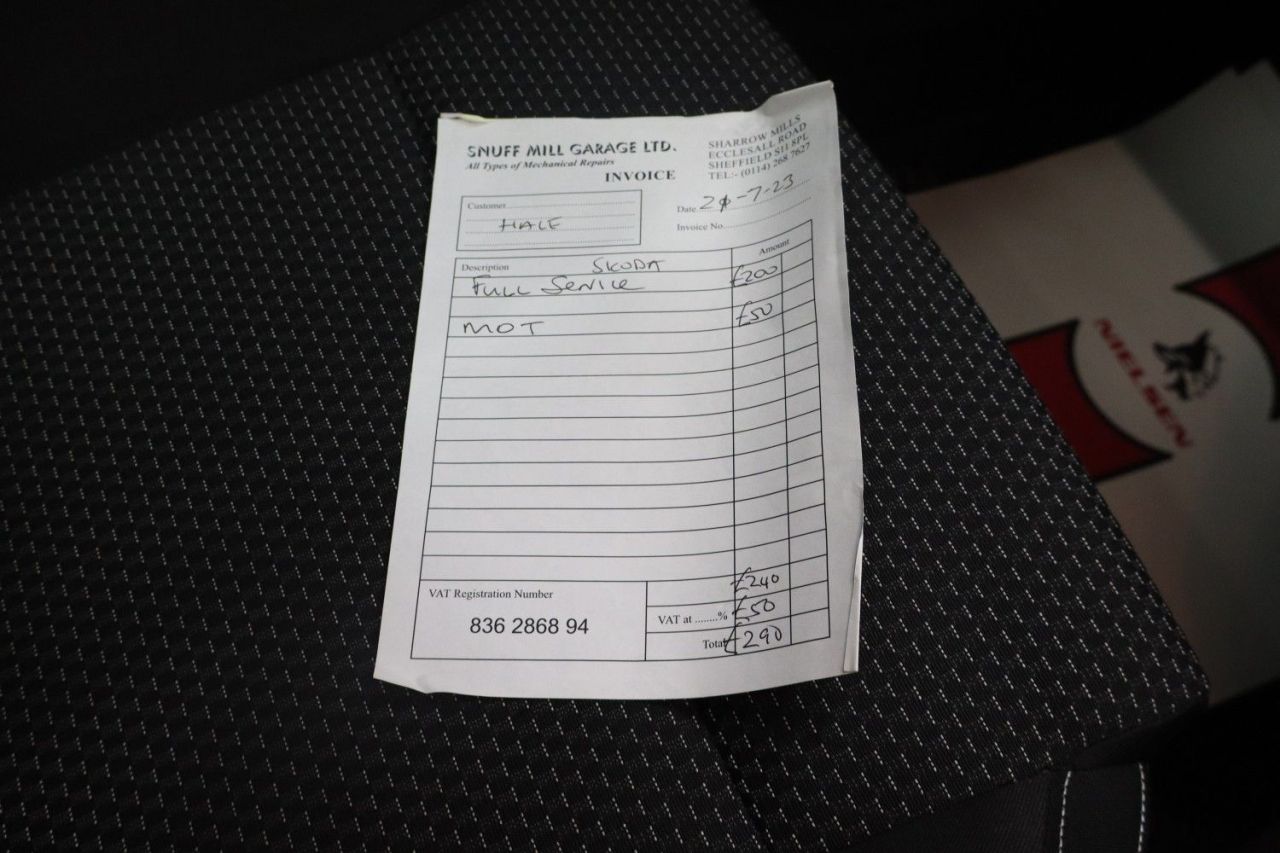 SNUFF MILL GARAGE LTD.
All Types of Mechanical Repairs
INVOICE
SHARROW MILLS
ECCLESALL ROAD
SHEFFIELD S11 8PL
TEL:- (0114) 268 7627
Customer
HALE
Date 20-7-23
Invoice No.
Description SKODA Amount
FULL SERVICE £200
MOT £50
£240
VAT Registration Number
VAT at ........% £50
836 2868 94
Total £290
NIELSEN